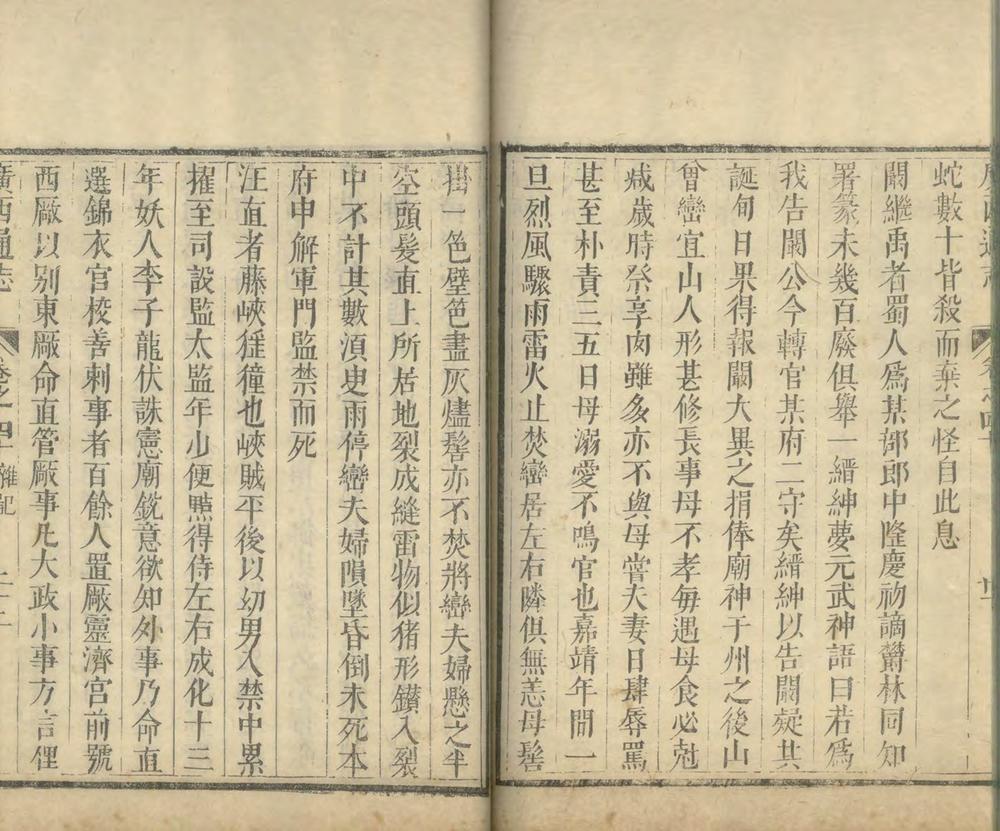 蛇數十皆殺而棄之怪自此息
闞繼禹者蜀人爲某部郎中隆慶初謫鬱林同知
署篆未幾百廢俱舉一縉紳夢元武神語曰若爲
我告闞公今轉官某府二守矣縉紳以告闞疑其
誕旬日果得報闞大異之捐俸廟神于州之後山
曾巒宜山人形甚修長事母不孝每遇母食必尅
减歲時祭享肉雖多亦不與母嘗夫妻日肆辱罵
甚至朴責三五日母溺愛不鳴官也嘉靖年間一
旦烈風驟雨雷火止焚巒居左右隣俱無恙母髻
掛一色壁笆盡灰燼髻亦不焚將巒夫婦懸之半
空頭髮直上所居地裂成縫雷物似猪形鑚入裂
中不計其數湏臾雨停巒夫婦隕墜昏倒未死本
府申解軍門監禁而死
汪直者藤峽猺獞也峽賊平後以幼男入禁中累
擢至司設監太監年少便黠得侍左右成化十三
年妖人李子龍伏誅憲廟銳意欲知外事乃命直
選錦衣官校善刺事者百餘人置厰靈濟宫前號
西厰以别東厰命直管厰事凡大政小事方言俚
廣西通志 卷之四十 雜記 二十二